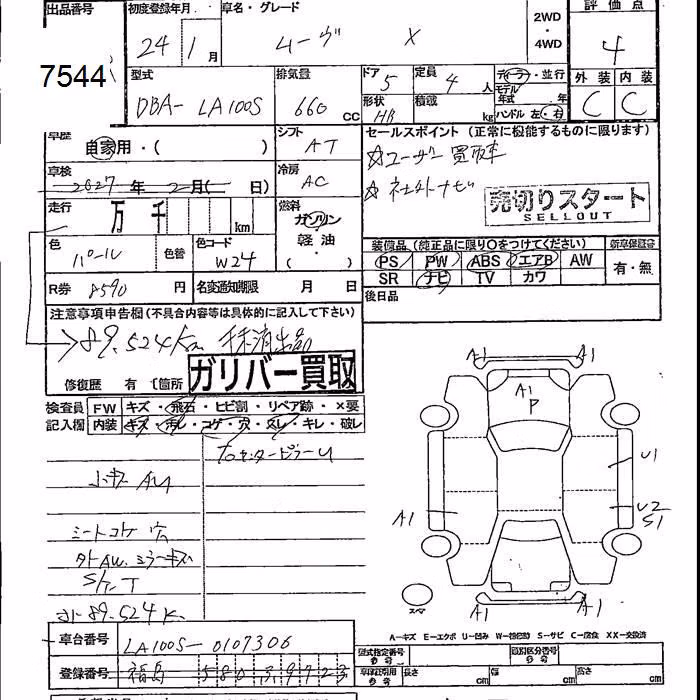 出品番号 初度登録年月 車名・グレード 2WD・4WD 評価点
7544 24年 1月 ムーヴ X 4
型式 排気量 ドア 5 定員 4人 ディーラ・並行 外装 内装
DBA-LA100S 660cc 形状 HB 積載 kg モデル年式 年 C C
ハンドル 左・右
車歴 自家用・( ) シフト AT セールスポイント(正常に機能するものに限ります)
車検 2027年 2月( 日) 冷房 AC ☆ユーザー買取車
☆社外ナビ
売切りスタート
SELLOUT
走行 万 千 km 燃料 ガソリン 軽油・( )
色 パール 色替 色コード W24
装備品(純正品に限り○をつけてください) 新車保証書
PS PW ABS エアB AW 有・無
SR ナビ TV カワ
R券 8590円 名変通知期限 月 日 後日品
注意事項申告欄(不具合内容等は具体的に記入して下さい)
89.524Km 抹消出品
修復歴 有 〔箇所 ガリバー買取
検査員 FW キズ・飛石・ヒビ割・リペア跡・×要
記入欄 内装 キズ・汚レ・コゲ・穴・スレ・キレ・破レ
小キズ AU
シートコゲ 穴
外AW.ミラーキズ
S/T.T
89.524K
A1 A1
A1
P
U1
A1 U2
S1
A1 A1
スペア
A=キズ E=エクボ U=凹み W=補修跡 S=サビ C=腐食 XX=交換済
車台番号 LA100S-0107306
登録番号 福島 580 ふ 9723
型式指定番号 類別区分番号
長さ cm 幅 cm 高さ cm